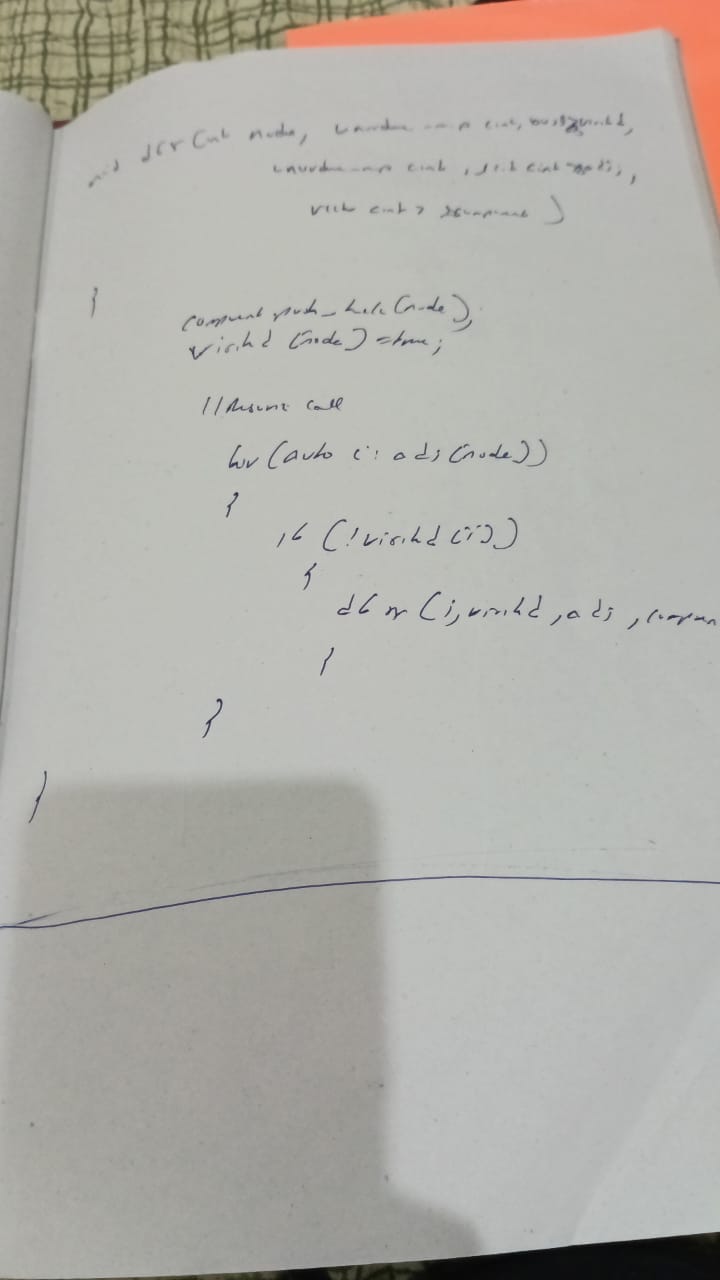 void dfs(int node, unordered_map<int, bool>&visited,
unordered_map<int, list<int>>&adj,
vector<int>&component)
{
component.push_back(node);
visited[node] = true;
//Recursive call
for(auto i: adj[node])
{
if(!visited[i])
{
dfs(i, visited, adj, componen
}
}
}